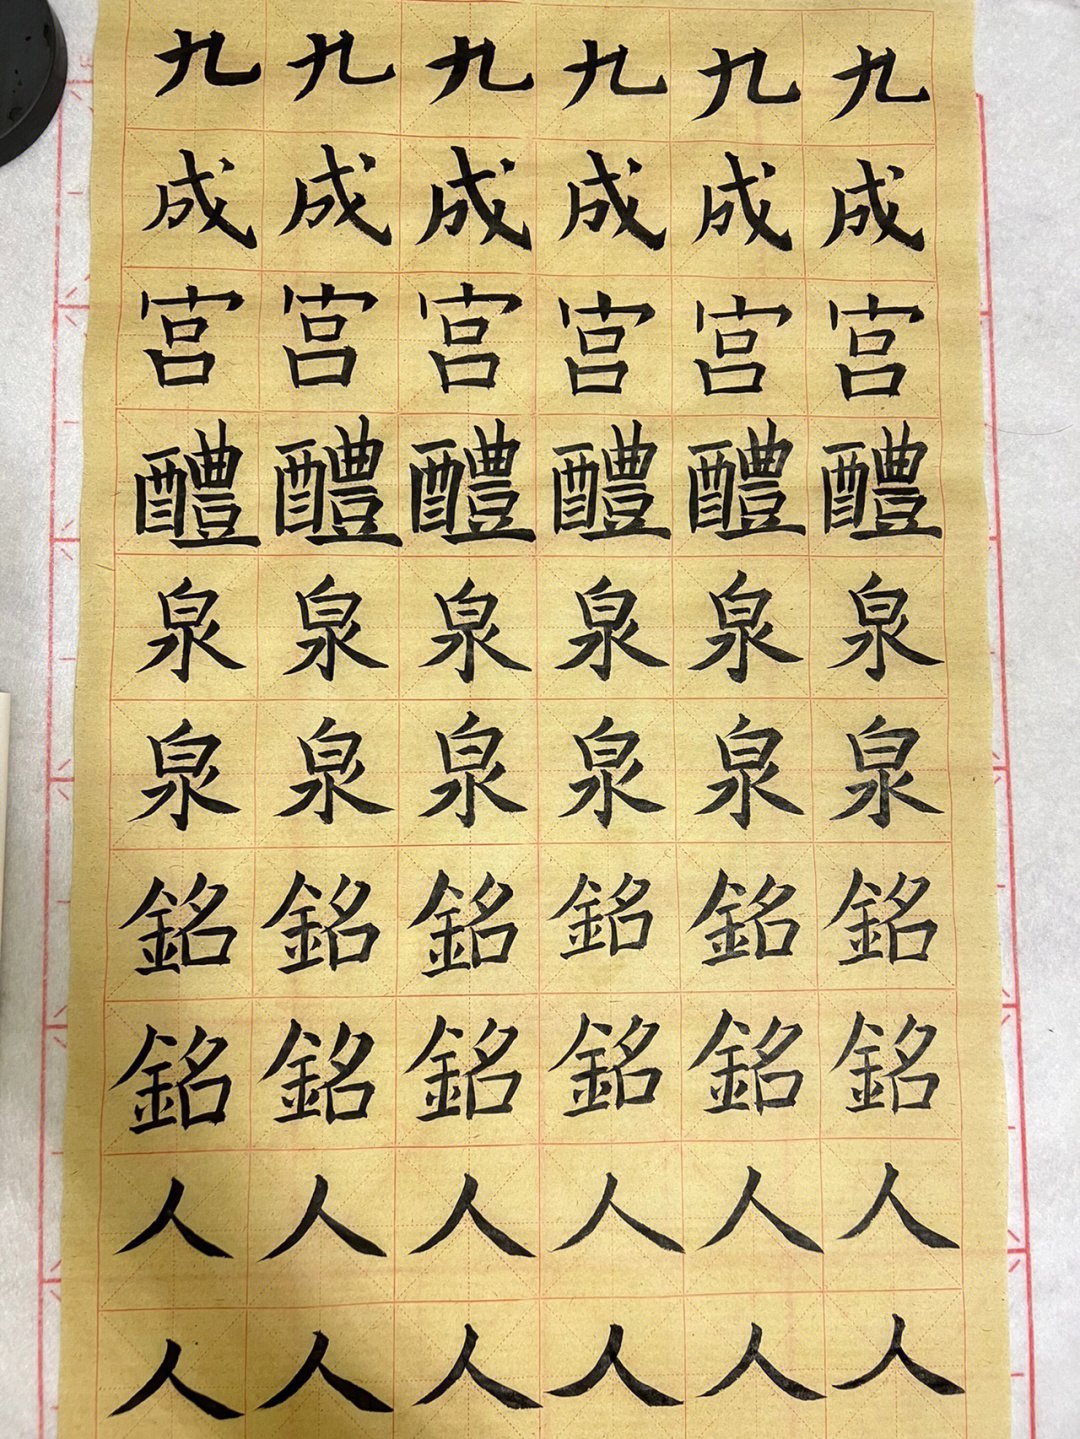 九九九九九九
成成成成成成
宫宫宫宫宫宫
醴醴醴醴醴醴
泉泉泉泉泉泉
泉泉泉泉泉泉
銘銘銘銘銘銘
銘銘銘銘銘銘
人人人人人人
人人人人人人